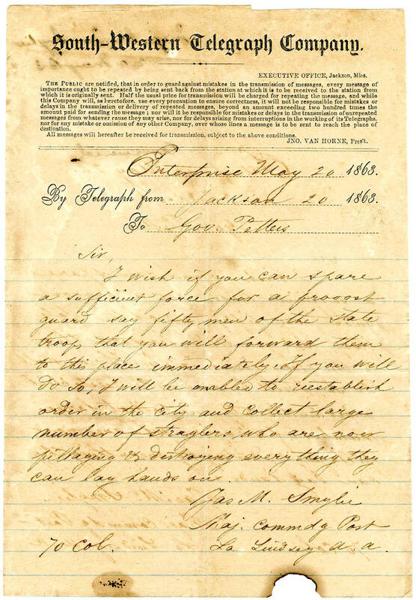 South-Western Telegraph Company.
EXECUTIVE OFFICE, Jackson, Miss.
THE PUBLIC are notified, that in order to guard against mistakes in the transmission of messages, every message of
importance ought to be repeated by being sent back from the station at which it is to be received to the station from
which it is originally sent. Half the usual price for transmission will be charged for repeating the message, and while
this Company will, as heretofore, use every precaution to ensure correctness, it will not be responsible for mistakes or
delays in the transmission or delivery of repeated messages, beyond an amount exceeding two hundred times the
amount paid for sending the message; nor will it be responsible for mistakes or delays in the transmission of unrepeated
messages from whatever cause they may arise, nor for delays arising from interruptions in the working of its Telegraphs,
nor for any mistake or omission of any other Company, over whose lines a message is to be sent to reach the place of
destination.
All messages will hereafter be received for transmission, subject to the above conditions.
JNO. VAN HORNE, Pres't.
Enterprise May 20 1863.
By Telegraph from Jackson 20 1863.
To Gov. Pettus
Sir,
I wish if you can spare
a sufficient force for a provost
guard say fifty men of the state
troop that you will forward them
to the place immediately. If you will
do so, I will be enabled to reestablish
order in the city and collect large
number of straglers who are now
pillaging & destroying everything they
can lay hands on.
Jas M. Smylie
Maj. Commdg Post
70 Col. La Lindsey a. a.